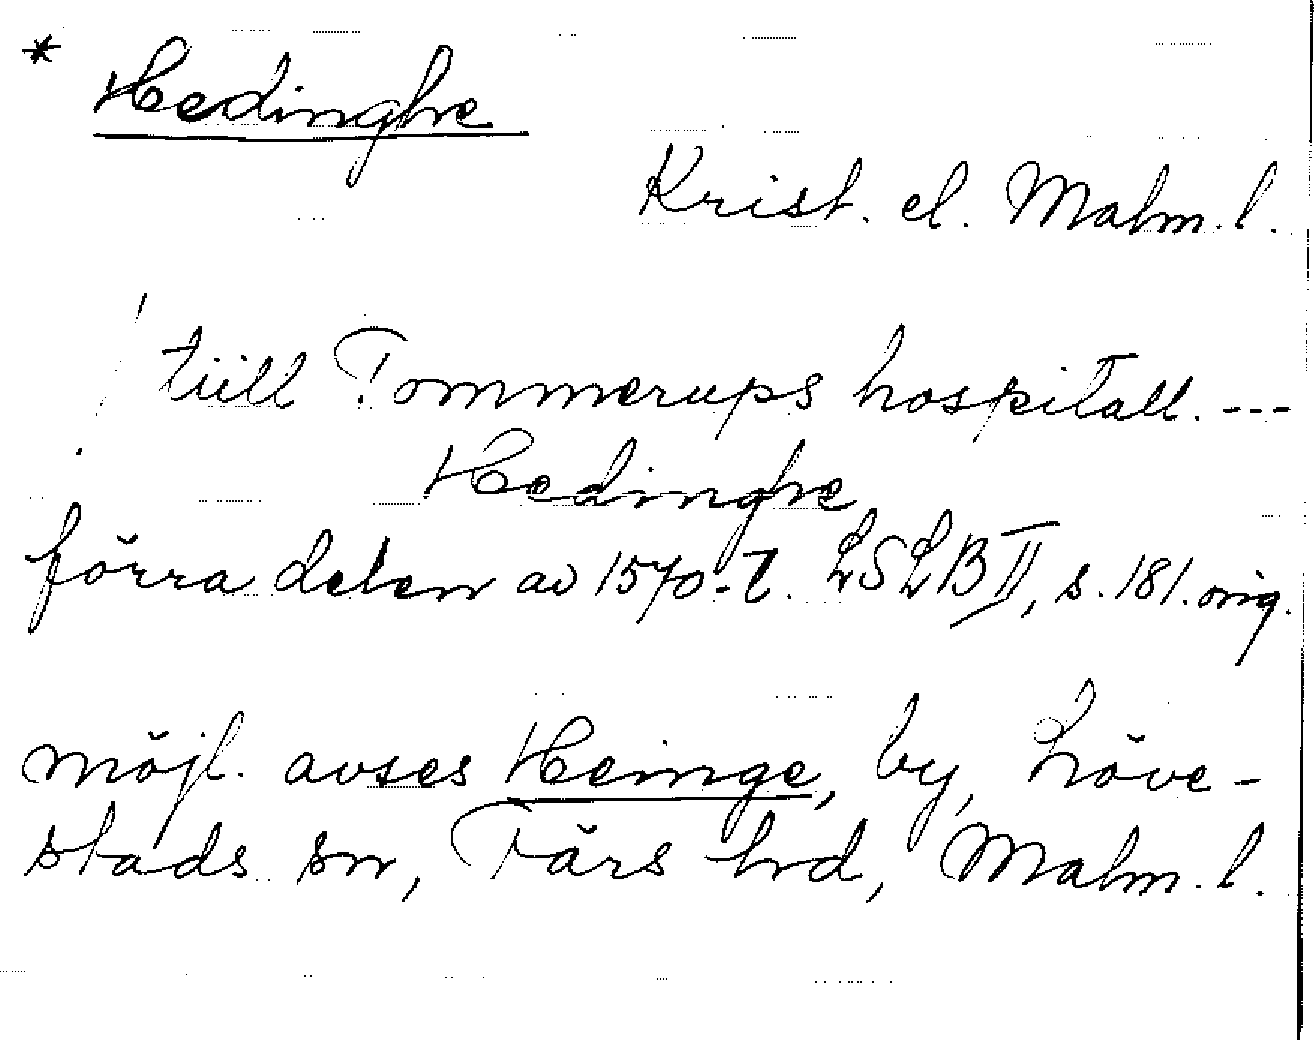 * Hedinghe
Krist. el. Malm. l.
tiill Tommerups hospitall. ---
Hedinghe
förra delen av 1570-t. LSLB II, s. 181. orig.
möjl. avses Heinge, by, Löve-
stads sn, Färs hrd, Malm. l.